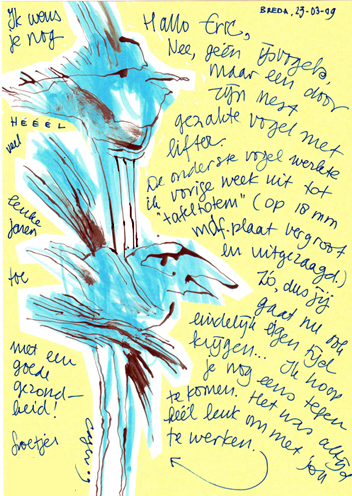 BREDA, 23-03-99
Hallo Eric,
Nee, geen ijsvogels,
maar een door
zijn nest
gezakte vogel met
lifter.
De onderste vogel werkte
ik vorige week uit tot
"tafeltotem" (op 18 mm
mdf. plaat vergroot
en uitgezaagd.)
Zó, dus jij
gaat nu ook
eindelijk eigen tijd
krijgen... Ik hoop
je nog eens tegen
te komen. Het was altijd
héél leuk om met jou
te werken.
Ik wens
je nog
HEEEL
veel
leuke
jaren
toe
met een
goede
gezond-
heid!
Groetjes